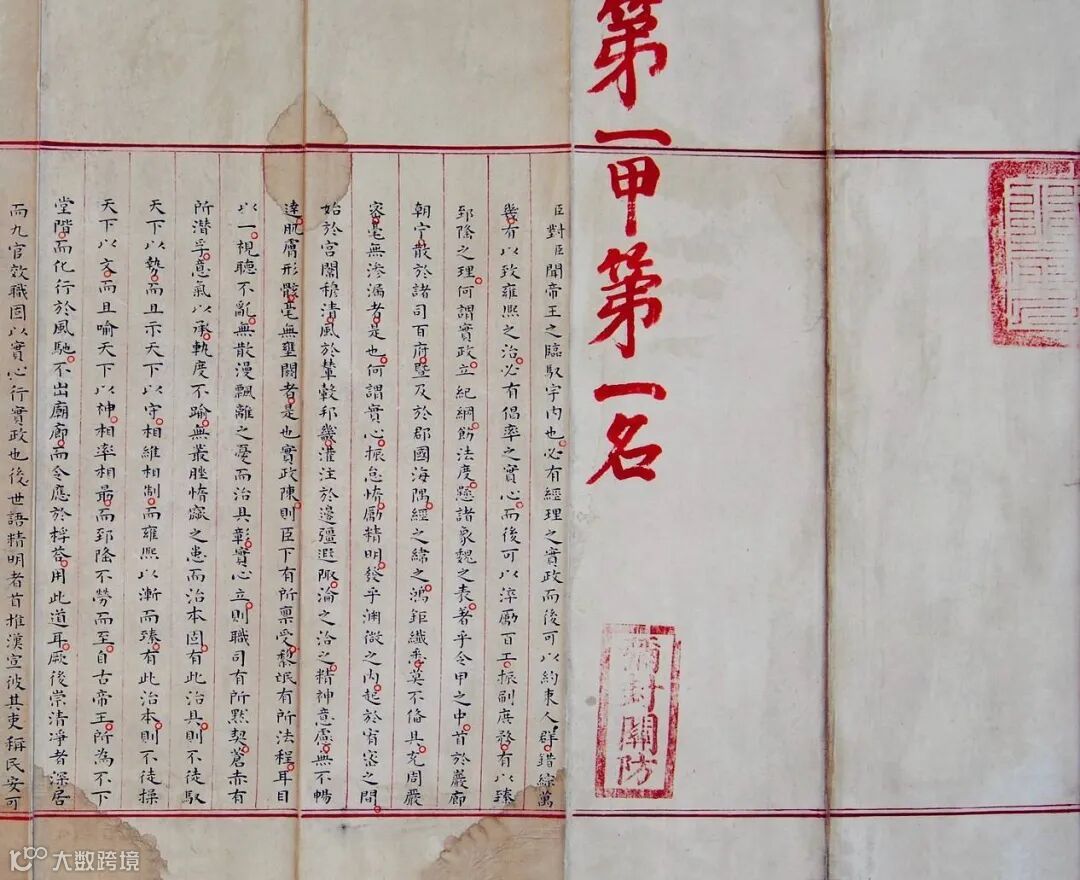 第一甲第一名
彌封關防
臣對臣聞帝王之臨馭宇內也必有經理之實政而後可以約束人群錯綜萬
幾有以致雍熙之治必有倡率之實心而後可以淬勵百工振刷庶務有以臻
郅隆之理何謂實政立紀綱飭法度懸諸象魏之表著乎令甲之中首於巖廊
朝宁散於諸司百府暨及於郡國海隅經之緯之鴻鉅纖悉莫不備具充周嚴
密毫無滲漏者是也何謂實心振怠惰勵精明發乎淵微之內起於宥密之間
始於宮闈穆清風於輦轂邦畿灌注於邊疆遐陬淪之洽之精神意慮無不暢
達肌膚形骸毫無壅閼者是也實政陳則臣下有所稟受黎氓有所法程耳目
以一視聽不亂無散漫飄離之憂而治具彰實心立則職司有所默契蒼赤有
所潛孚意氣以承軌度不踰無叢脞惰窳之患而治本固有此治具則不徒馭
天下以勢而且示天下以守相維相制而雍熙以漸而臻有此治本則不徒操
天下以文而且喻天下以神相率相最而郅隆不勞而至自古帝王所為不下
堂階而化行於風馳不出廟廊而令應於桴荅用此道耳厥後崇清淨者深居
而九官效職固以實心行實政也後世語精明者首推漢宣彼其吏稱民安可
大数跨境